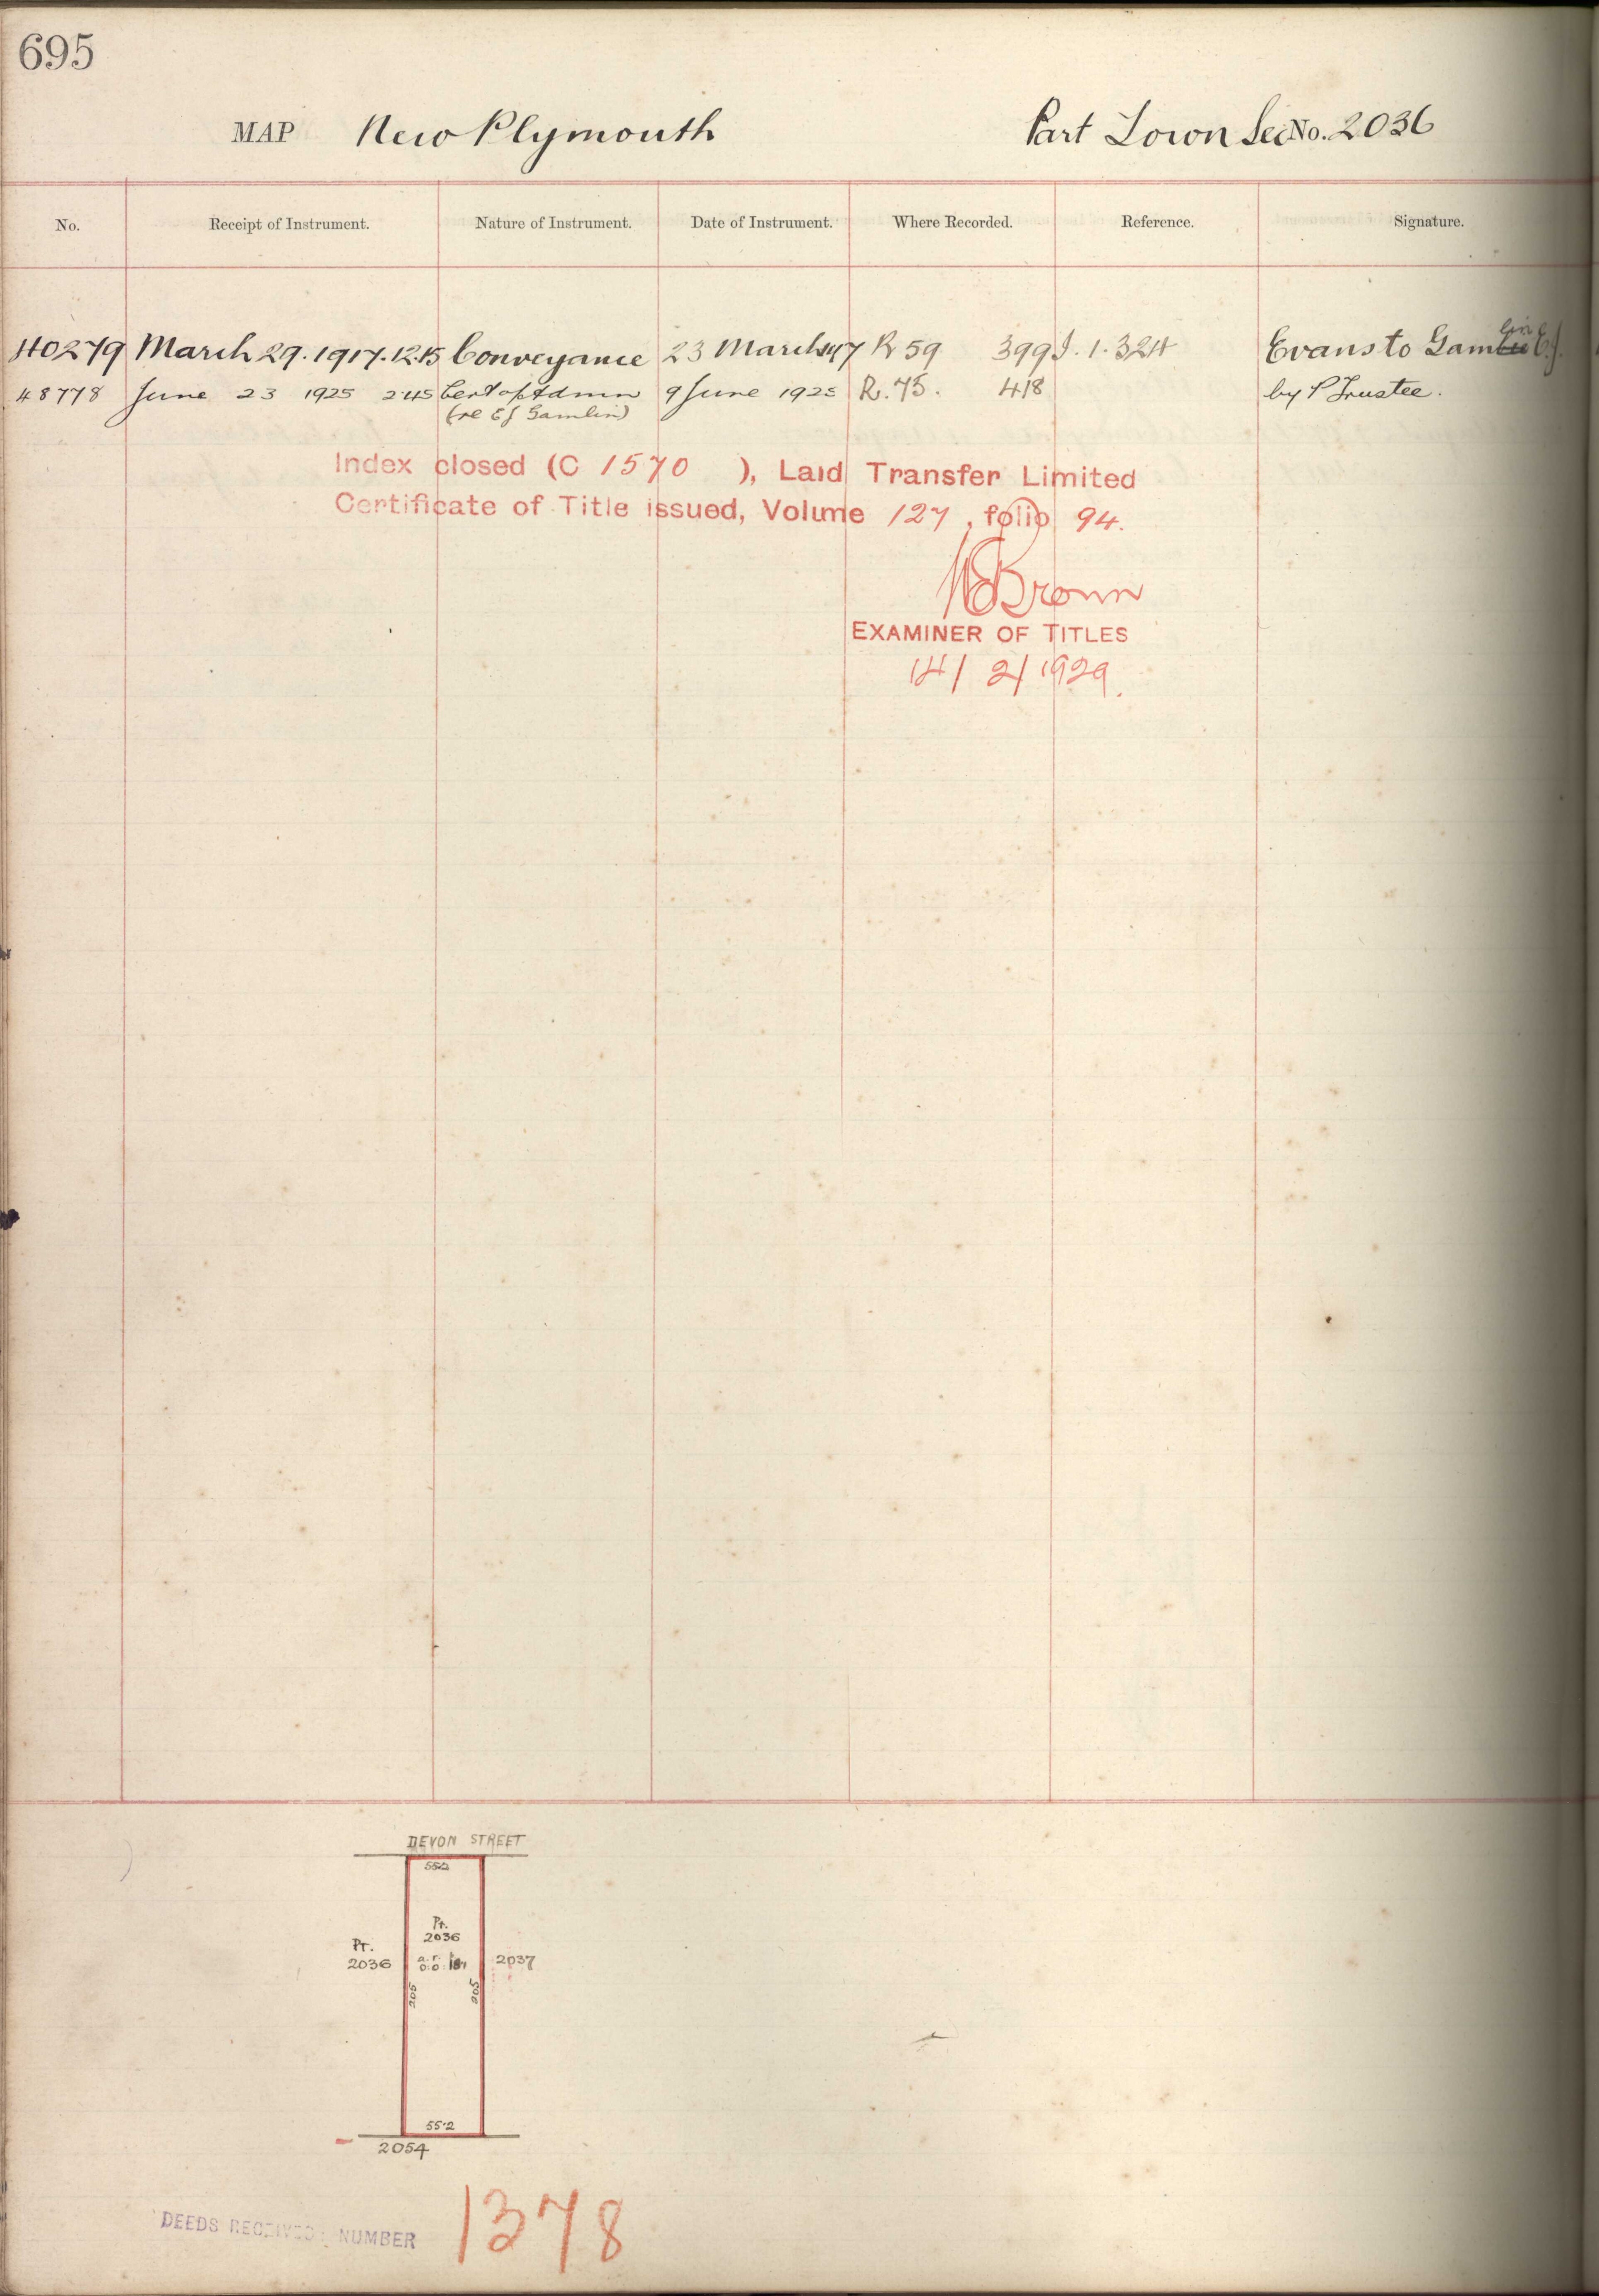 695
MAP New Plymouth Part Town Sec No. 2036
No. Receipt of Instrument. Nature of Instrument. Date of Instrument. Where Recorded. Reference. Signature.
40279 March 29. 1917. 12.15 Conveyance 23 March 1917 R 59 399 I. 1. 324 Evans to Gamlin E.J.
48778 June 23 1925 2.45 Cert of Admn 9 June 1925 R. 75. 418 by P Trustee.
(re E J Gamlin)
Index closed (C 1570 ), Land Transfer Limited
Certificate of Title issued, Volume 127, folio 94.
Brown
EXAMINER OF TITLES
14/2/1929.
DEVON STREET
55.2
Pt.
2036
Pt.
2036
a. r.
0. 0.
2037
205
205
55.2
2054
DEEDS RECEIVED: NUMBER 1378